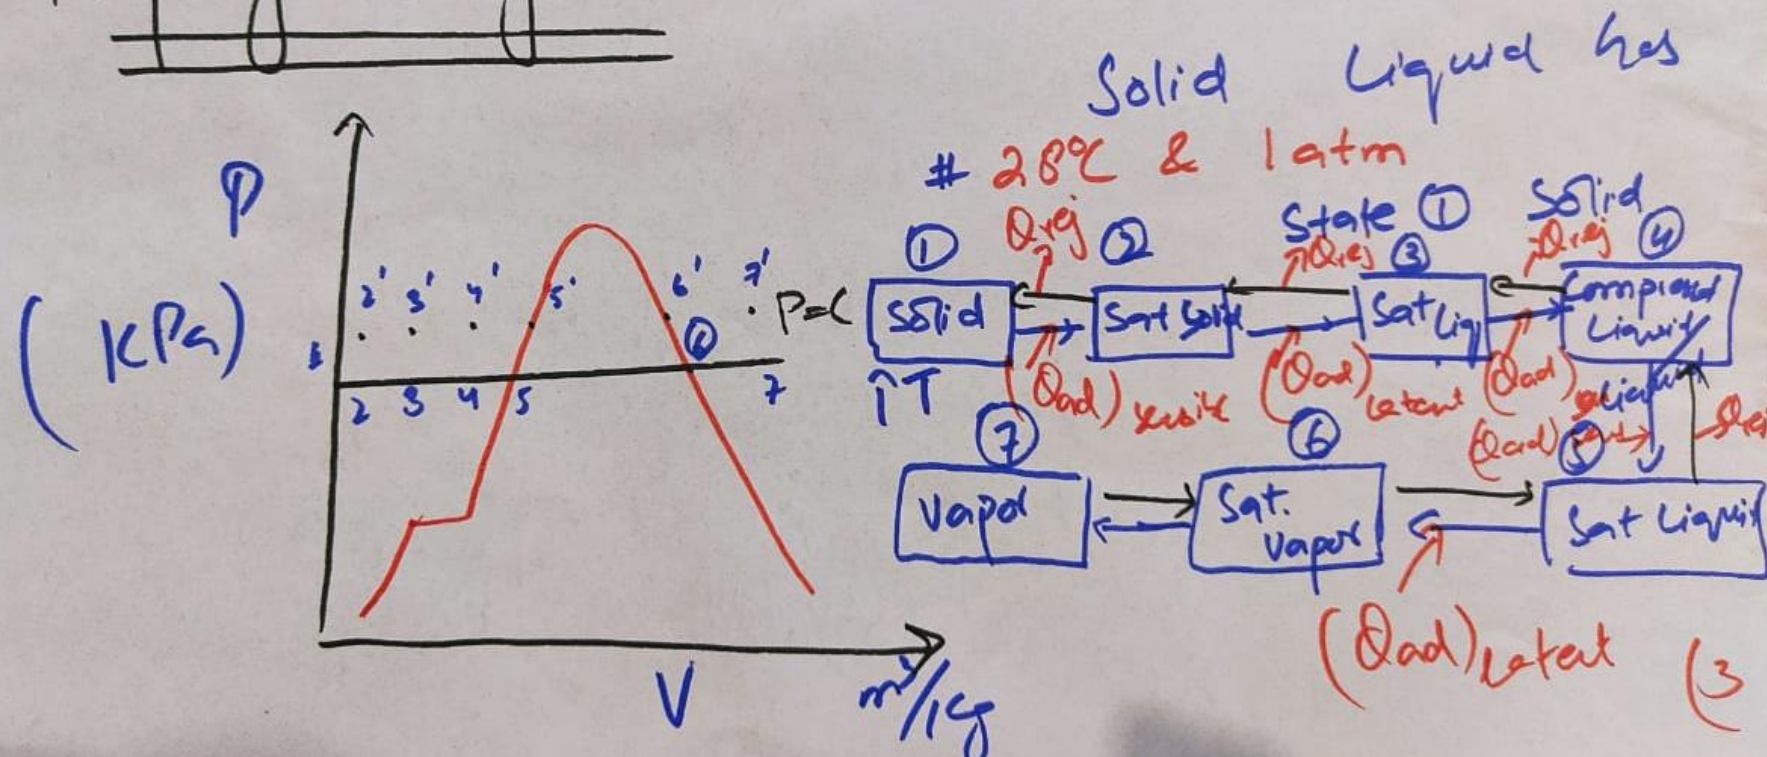 Solid Liquid Gas
# 28°C & 1 atm
State ① Solid
P
(KPa)
2' 3' 4' 5' 6' 7' P=C
1
2 3 4 5 ⑥ 7
V m³/kg
① Qrej ② Qrej ③ Qrej ④
Solid Sat Solid Sat Liq Compressed Liquid
↑T (Qad) sensible (Qad) latent (Qad)
(Qad)
⑦ ⑥ ⑤
Vapor Sat. Vapor Sat Liquid
(Qad) Latent (3